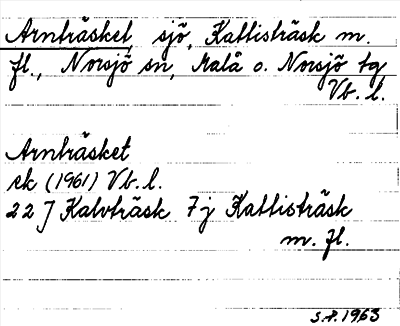 Arnträsket, sjö, Kattisträsk m.
fl., Norsjö sn, Malå o. Norsjö tg
Vb. l.
Arnträsket
ek (1961) Vb. l.
22 J Kalvträsk 7j Kattisträsk
m. fl.
S.P. 1963